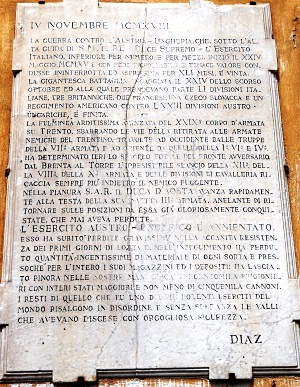 IV NOVEMBRE MCMXVIII
LA GUERRA CONTRO L'AUSTRIA-UNGHERIA CHE, SOTTO L'AL
TA GUIDA DI S.M. IL RE DUCE SUPREMO - L'ESERCITO
ITALIANO, INFERIORE PER NUMERO E PER MEZZI, INIZIÒ IL XXIV
MAGGIO MCMXV E CON E TENACE VALORE CON
DUSSE ININTERROTTA ED ASPRISSIMA PER XLI MESI, È VINTA.
LA GIGANTESCA BATTAGLIA INGAGGIATA IL XXIV DELLO SCORSO
OTTOBRE ED ALLA QUALE PRENDEVANO PARTE LI DIVISIONI ITA
LIANE, TRE BRITANNICHE, DUE FRANCESI, UNA CZECO SLOVACCA E UN
REGGIMENTO AMERICANO CONTRO LXXIII DIVISIONI AUSTRO
UNGARICHE, È FINITA.
LA FULMINEA ARDITISSIMA AVANZATA DEL XXIX CORPO D'ARMATA
SU TRENTO, SBARRANDO LE VIE DELLA RITIRATA ALLE ARMATE
NEMICHE DEL TRENTINO, TRAVOLTE AD OCCIDENTE DALLE TRUPPE
DELLA VII ARMATA E AD ORIENTE DA QUELLE DELLA I VI E IV
HA DETERMINATO IERI LO SFACELO TOTALE DEL FRONTE AVVERSARIO
DAL BRENTA AL TORRE L'IRRESISTIBILE SLANCIO DELLA XII DEL
LA VIII DELLA X ARMATA E DELLE DIVISIONI DI CAVALLERIA RI
CACCIA SEMPRE PIÙ INDIETRO IL NEMICO FUGGENTE.
NELLA PIANURA S.A.R. IL DUCA D'AOSTA AVANZA RAPIDAMEN
TE ALLA TESTA DELLA SUA INVITTA III ARMATA, ANELANTE DI RI
TORNARE SULLE POSIZIONI DA ESSA GIÀ GLORIOSAMENTE CONQUI
STATE, CHE MAI AVEVA PERDUTE.
L'ESERCITO AUSTRO-UNGARICO È ANNIENTATO.
ESSO HA SUBITO PERDITE GRAVISSIME NELLA ACCANITA RESISTEN
ZA DEI PRIMI GIORNI DI LOTTA E NELL'INSEGUIMENTO HA PERDU
TO QUANTITÀ INGENTISSIME DI MATERIALE DI OGNI SORTA E PRES
SOCHÉ PER L'INTERO I SUOI MAGAZZINI ED I DEPOSITI HA LASCIA
TO FINORA NELLE NOSTRE MANI CIRCA TRECENTOMILA PRIGIONIE
RI CON INTERI STATI MAGGIORI E NON MENO DI CINQUEMILA CANNONI.
I RESTI DI QUELLO CHE FU UNO DEI PIÙ POTENTI ESERCITI DEL
MONDO RISALGONO IN DISORDINE E SENZA SPERANZA LE VALLI
CHE AVEVANO DISCESE CON ORGOGLIOSA SICUREZZA.
DIAZ